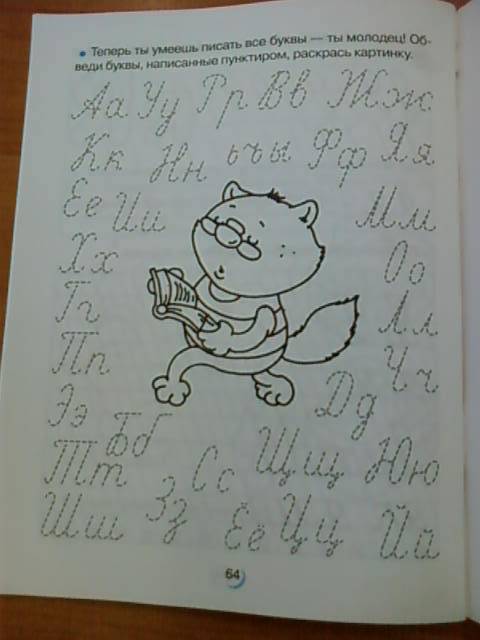 • Теперь ты умеешь писать все буквы — ты молодец! Об-
веди буквы, написанные пунктиром, раскрась картинку.
Аа Уу Рр Вв Жж
Кк Нн ьъы Фф Яя
Ее Ии Мм
Хх Оо
Гг Лл
Пп Чч
Ээ Бб Дд
Тт Сс Щщ Юю
Шш Зз Ёё Цц Йй
64